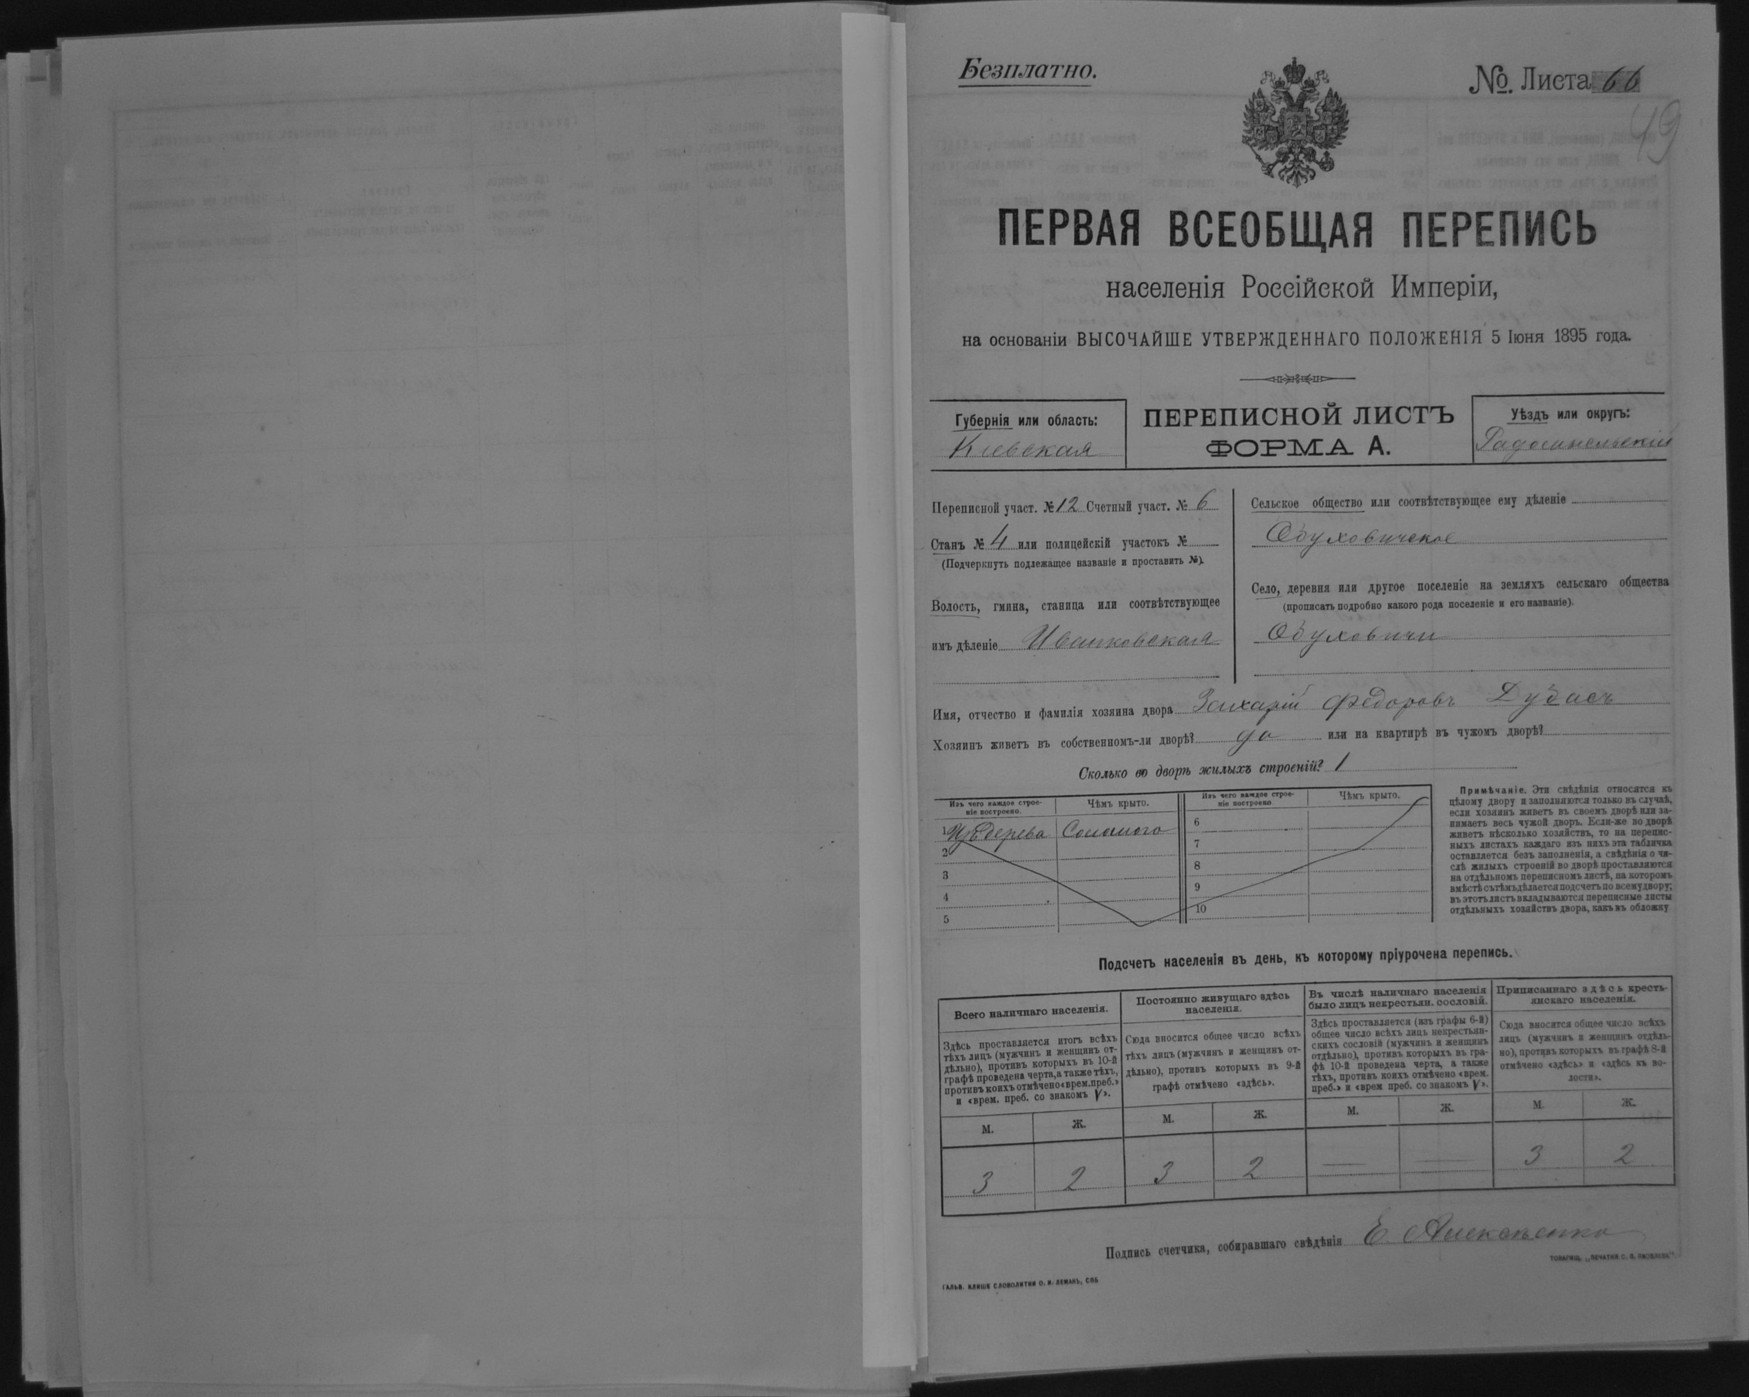 Безплатно.
№. Листа 66
49
ПЕРВАЯ ВСЕОБЩАЯ ПЕРЕПИСЬ
населенія Россійской Имперіи,
на основаніи ВЫСОЧАЙШЕ УТВЕРЖДЕННАГО ПОЛОЖЕНІЯ 5 Іюня 1895 года.
Губернія или область:
Кіевская
ПЕРЕПИСНОЙ ЛИСТЪ
ФОРМА А.
Уѣздъ или округъ:
Радомысльскій
Переписной участ. № 12 Счетный участ. № 6
Станъ № 4 или полицейскій участокъ №
(Подчеркнуть подлежащее названіе и проставить №).
Волость, гмина, станица или соотвѣтствующее
имъ дѣленіе Иванковская
Сельское общество или соотвѣтствующее ему дѣленіе
Обуховичское
Село, деревня или другое поселеніе на земляхъ сельскаго общества
(прописать подробно какого рода поселеніе и его названіе).
Обуховичи
Имя, отчество и фамилія хозяина двора Захарій Федоровъ Дубасъ
Хозяинъ живетъ въ собственномъ-ли дворѣ? да или на квартирѣ въ чужомъ дворѣ?
Сколько во дворѣ жилыхъ строеній? 1
Изъ чего каждое строе-
ніе построено.
Чѣмъ крыто.
Изъ дерева Соломою
2
3
4
5
Изъ чего каждое строе-
ніе построено
Чѣмъ крыто.
6
7
8
9
10
Примѣчаніе. Эти свѣдѣнія относятся къ
цѣлому двору и заполняются только въ случаѣ,
если хозяинъ живетъ въ своемъ дворѣ или за-
нимаетъ весь чужой дворъ. Если-же во дворѣ
живетъ нѣсколько хозяйствъ, то на перепис-
ныхъ листахъ каждаго изъ нихъ эта табличка
оставляется безъ заполненія, а свѣдѣнія о чи-
слѣ жилыхъ строеній во дворѣ проставляются
на отдѣльномъ переписномъ листѣ, на которомъ
вмѣстѣ съ тѣмъ дѣлается подсчетъ по всему двору;
въ этотъ листъ вкладываются переписные листы
отдѣльныхъ хозяйствъ двора, какъ въ обложку
Подсчетъ населенія въ день, къ которому пріурочена перепись.
Всего наличнаго населенія.
Здѣсь проставляется итогъ всѣхъ
тѣхъ лицъ (мужчинъ и женщинъ от-
дѣльно), противъ которыхъ въ 10-й
графѣ проведена черта, а также тѣхъ,
противъ коихъ отмѣчено «врем. преб.»
и «врем. преб. со знакомъ V».
Постоянно живущаго здѣсь
населенія.
Сюда вносится общее число всѣхъ
тѣхъ лицъ (мужчинъ и женщинъ от-
дѣльно), противъ которыхъ въ 9-й
графѣ отмѣчено «здѣсь».
Въ числѣ наличнаго населенія
было лицъ некрестьян. сословій.
Здѣсь проставляется (изъ графы 6-й)
общее число всѣхъ лицъ некрестьян-
скихъ сословій (мужчинъ и женщинъ
отдѣльно), противъ которыхъ въ гра-
фѣ 10-й проведена черта, а также
тѣхъ, противъ коихъ отмѣчено «врем.
преб.» и «врем преб. со знакомъ V».
Приписаннаго здѣсь кресть-
янскаго населенія.
Сюда вносится общее число всѣхъ
лицъ (мужчинъ и женщинъ отдѣль-
но), противъ которыхъ въ графѣ 8-й
отмѣчено «здѣсь» и «здѣсь въ во-
лости».
М. Ж. М. Ж. М. Ж. М. Ж.
3 2 3 2 — — 3 2
Подпись счетчика, собиравшаго свѣдѣнія Е.
ГАЛЬВ. КЛИШЕ СЛОВОЛИТНИ О. И. ЛЕМАНЪ, СПБ
ТОВАРИЩ. „ПЕЧАТНЯ С. П. ЯКОВЛЕВА“